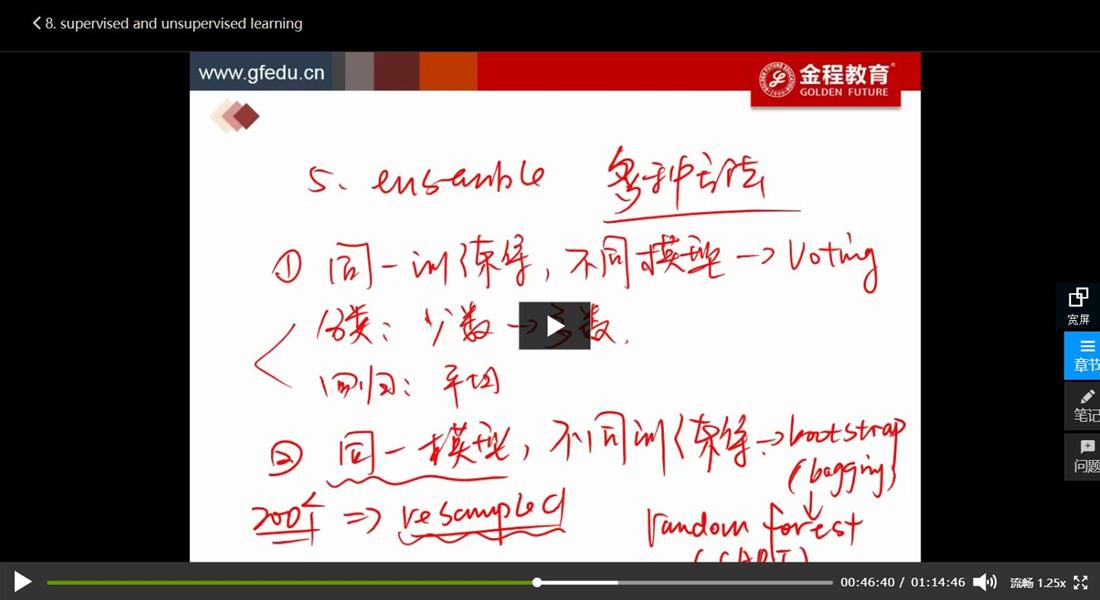 8. supervised and unsupervised learning
www.gfedu.cn
金程教育
GOLDEN FUTURE
5、ensemble 多种方法
① 同一训练集，不同模型→Voting
分类：少数→多数.
回归：平均
② 同一模型，不同训练集→bootstrap
(bagging)
200个 => resampled
random forest
(CART)
宽屏
章节
笔记
问题
00:46:40 / 01:14:46 流畅 1.25x